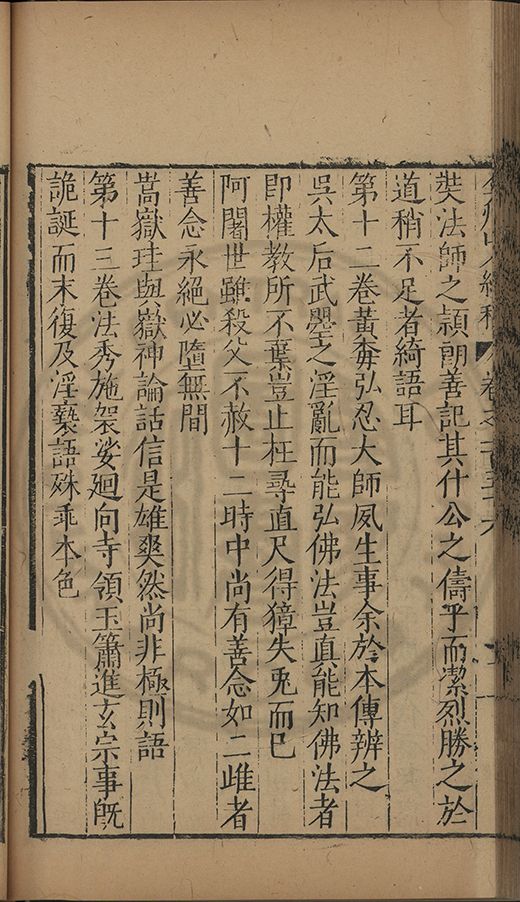 弇州山人續稿 卷之一百五十六
奘法師之頴朗善記其什公之儔乎而潔烈勝之於
道稍不足者綺語耳
第十二卷黃梅弘忍大師夙生事余於本傳辨之
吳太后武曌之淫亂而能弘佛法豈真能知佛法者
即權教所不棄豈止枉尋直尺得獐失兎而已
阿闍世雖殺父不赦十二時中尚有善念如二雌者
善念永絕必墮無間
嵩嶽珪與嶽神論話信是雄奭然尚非極則語
第十三卷法秀施袈裟廻向寺領玉簫進玄宗事旣
詭誕而末復及淫褻語殊乖本色